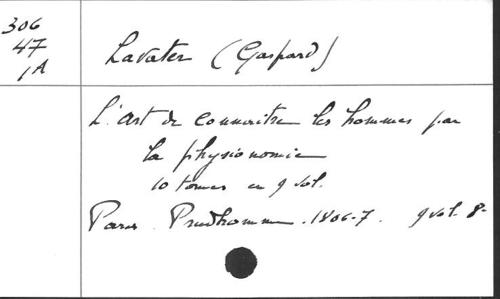 306
47
1A
Lavater (Gaspard)
L'art de connaitre les hommes par
la physionomie
10 tomes en 9 vol.
Paris. Prudhomme. 1806-7. 9 vol. 8-